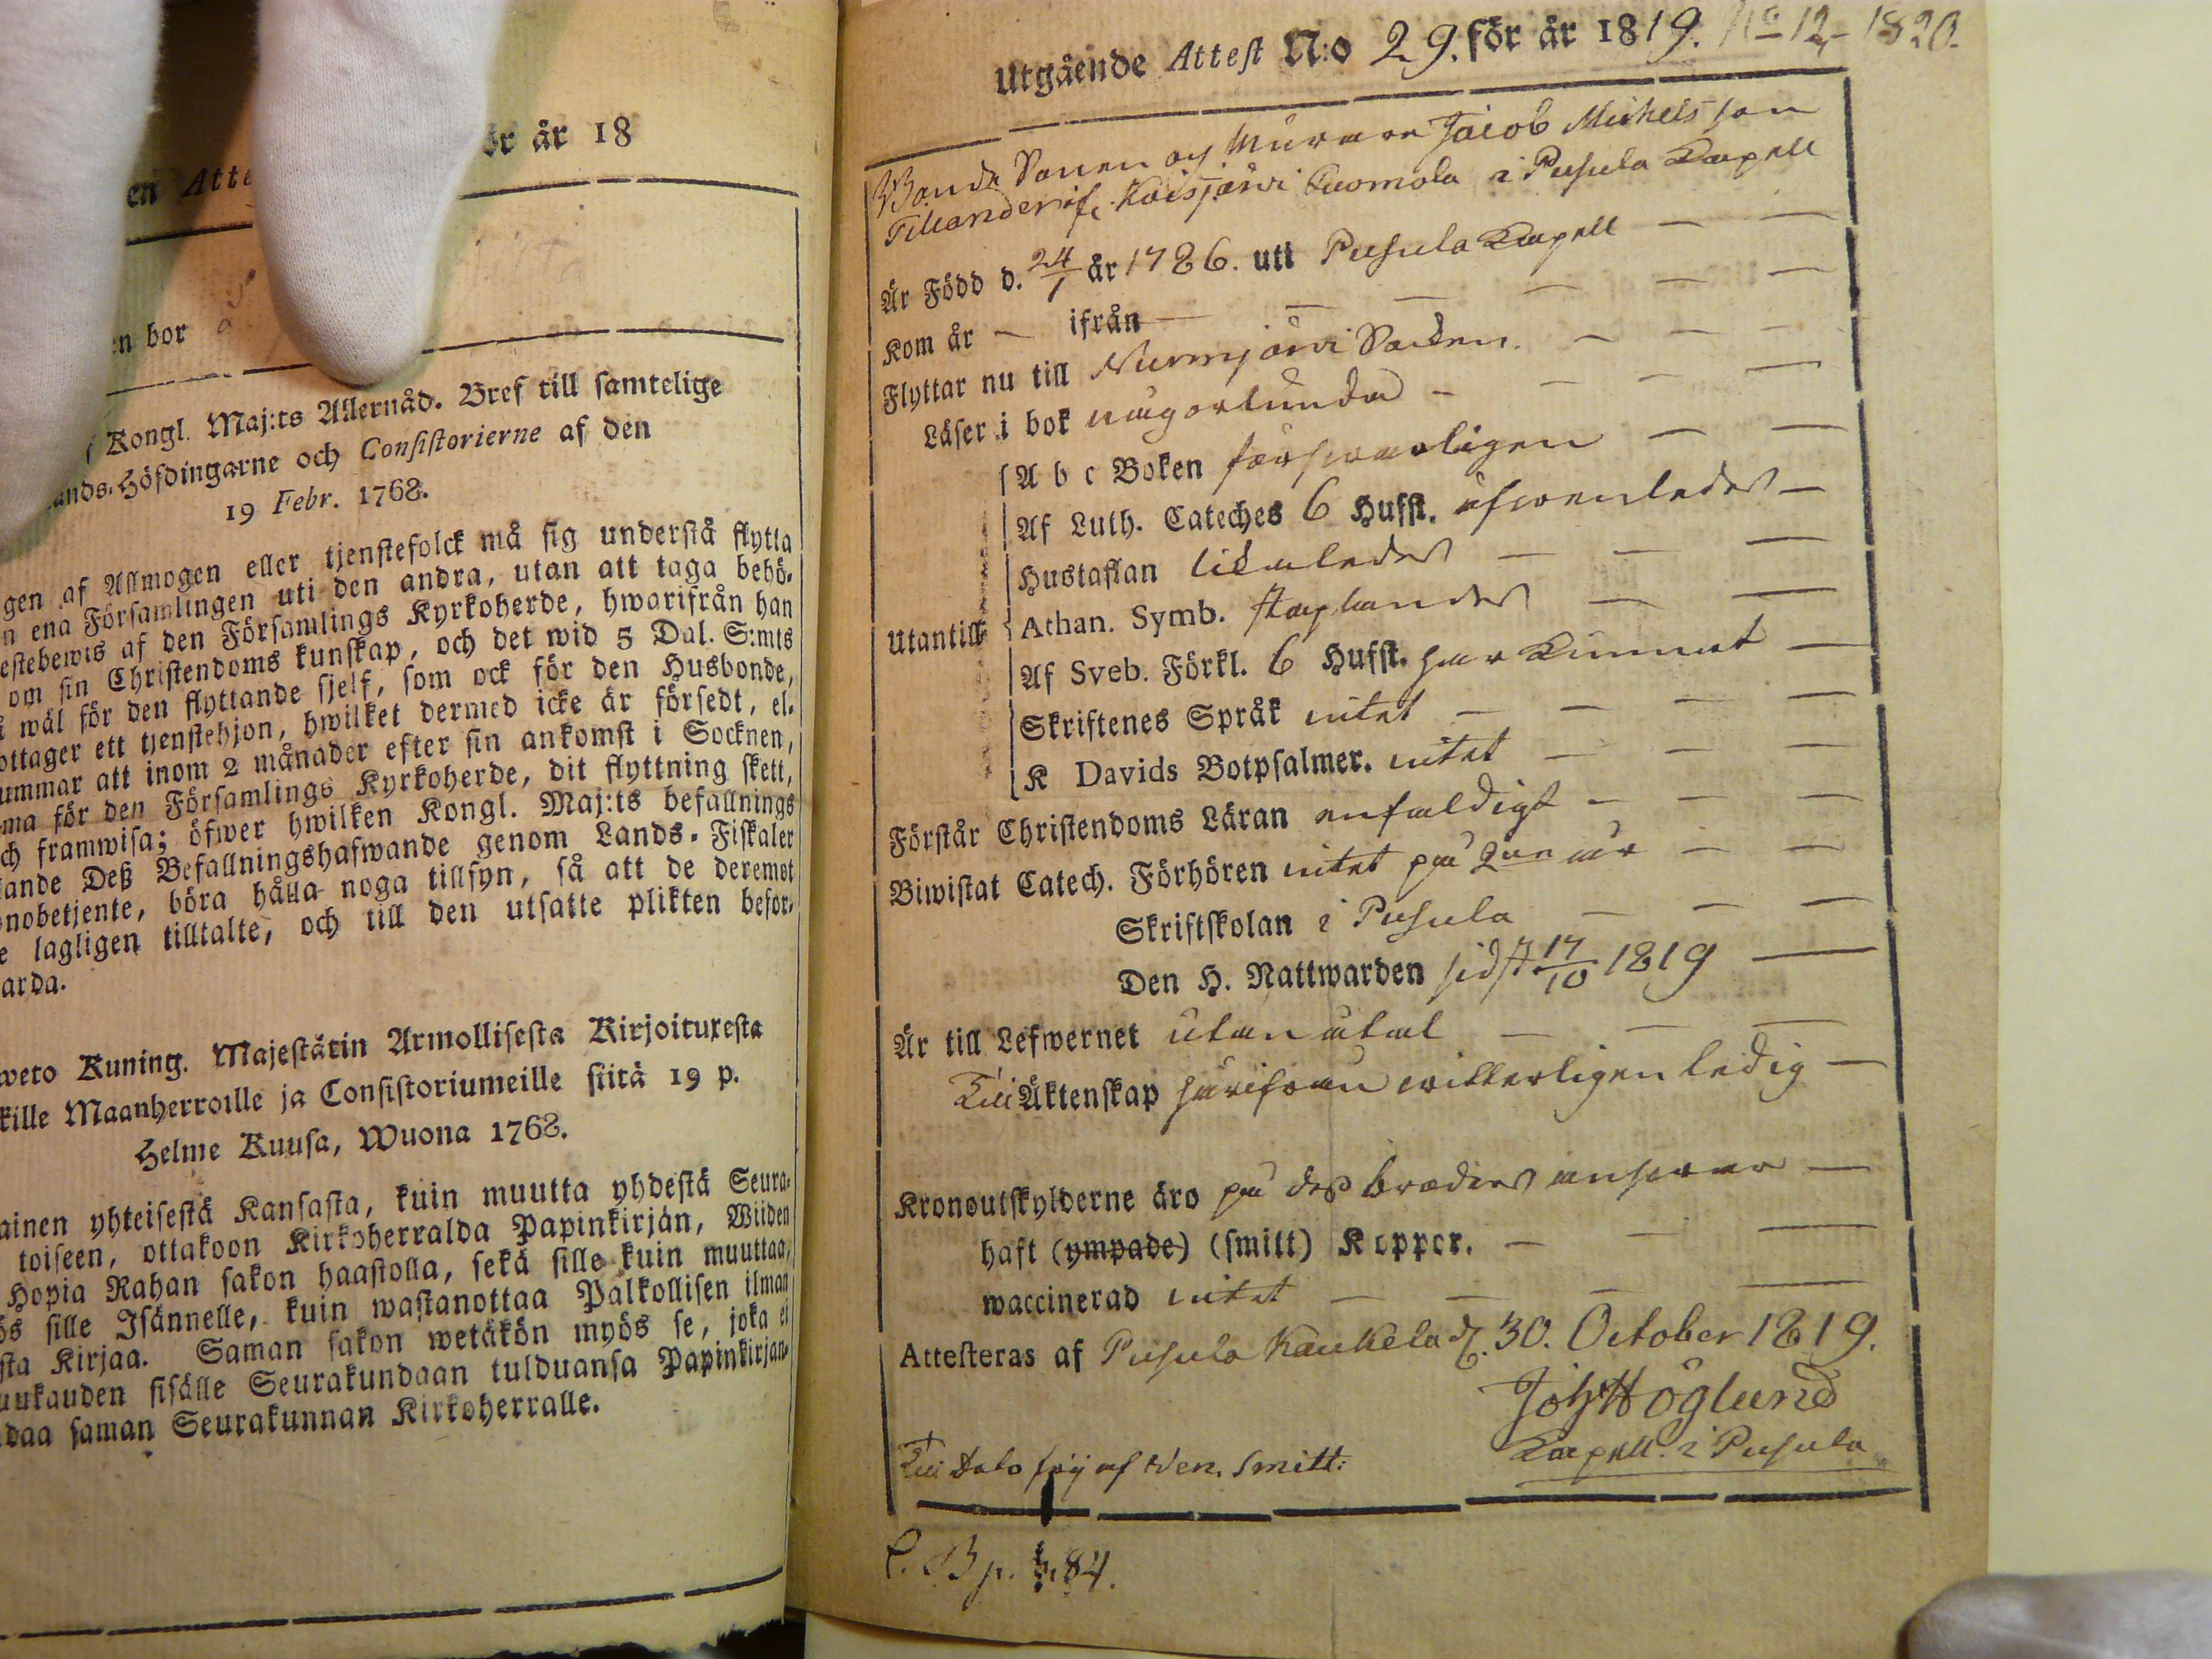 ör år 18
en Atte
en bor
Kongl. Maj:ts Allernåd. Bref till samtelige
ands-Höfdingarne och Consistorierne af den
19 Febr. 1768.
gen af Allmogen eller tjenstefolck må sig understå flytta
n ena Församlingen uti den andra, utan att taga behö-
estebewis af den Församlings Kyrkoherde, hwarifrån han
om sin Christendoms kunskap, och det wid 5 Dal. S:mts
å wäl för den flyttande sjelf, som ock för den Husbonde,
ottager ett tjenstehjon, hwilket dermed icke är försedt, el-
ummar att inom 2 månader efter sin ankomst i Socknen,
ma för den Församlings Kyrkoherde, dit flyttning skett,
ch framwisa; öfwer hwilken Kongl. Maj:ts befallnings
ande Deß Befallningshafwande genom Lands-Fiskaler
onobetjente, böra hålla noga tillsyn, så att de deremot
e lagligen tilltalte, och till den utsatte plikten befor-
arda.
weto Kuning. Majestätin Armollisesta Kirjoituxesta
kille Maanherroille ja Consistoriumeille siitä 19 p.
Helme Kuusa, Wuona 1768.
ainen yhteisestä Kansasta, kuin muutta yhdestä Seura-
toiseen, ottakoon Kirkoherralda Papinkirjan, Wiiden
Hopia Rahan sakon haastolla, sekä sille kuin muuttaa,
ös sille Isännelle, kuin wastanottaa Palkollisen ilman
sta Kirjaa. Saman sakon wetäkön myös se, joka ei
uukauden sisälle Seurakundaan tulduansa Papinkirjan-
daa saman Seurakunnan Kirkoherralle.
Utgående Attest N:o 29. för år 1819. No 12 1820.
Bonde Sonen och Murare Jacob Michelsson
Tillander if. Koisjärvi Tuomola i Pusula Kapell
Är Född d. 24/1 år 1786. uti Pusula Kapell — —
Kom år — ifrån — — — — — —
Flyttar nu till Nurmijärvi Socken. — — —
Läser i bok någorlunda — — — —
A b c Boken försvarligen — —
Af Luth. Cateches 6 Hufst. äfwenledes —
Hustaflan likaledes — — —
Utantill Athan. Symb. staplandes — —
Af Sveb. Förkl. 6 Hufst. har kunnat —
Skriftenes Språk intet — — — —
K Davids Botpsalmer. intet — — —
Förstår Christendoms Läran enfaldigt — — —
Biwistat Catech. Förhören intet på 2ne år — —
Skriftskolan i Pusula — — —
Den H. Nattwarden sidst 17/10 1819 —
Är till Lefwernet utan åtal — — —
Till Äktenskap härifrån witterligen ledig —
Kronoutskylderne äro på deß broders ansvar —
haft (ympade) (smitt) Koppor. — — —
waccinerad intet — — — —
Attesteras af Pusula Kaukela d. 30. October 1819.
Joh Höglund
Kapell. i Pusula
Till Dato fri af Ven. Smitt:
C. B p. 84.